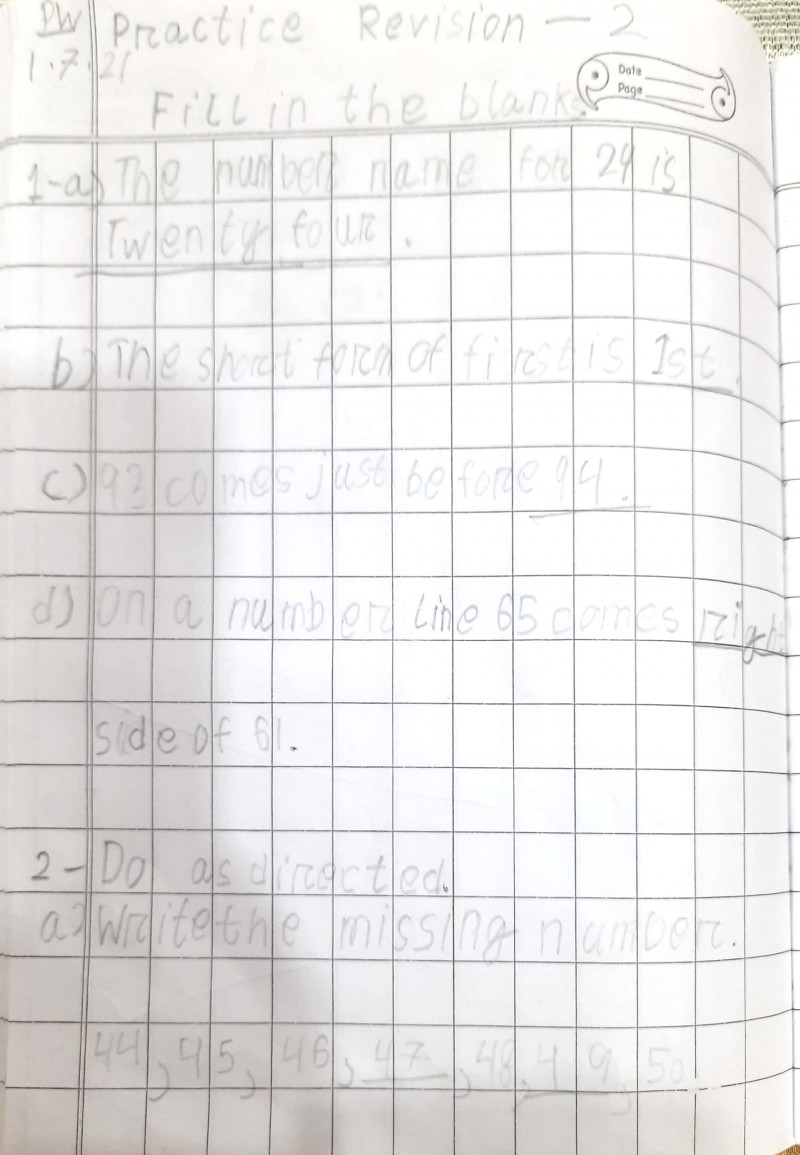 PW Practice Revision - 2
1.7.21
Date
Page
Fill in the blanks
1-a) The number name for 24 is
Twenty four.
b) The short form of first is 1st.
c) 93 comes just before 94.
d) On a number Line 65 comes right
side of 61.
2- Do as directed.
a) Write the missing number.
44, 45, 46, 47, 48, 49, 50